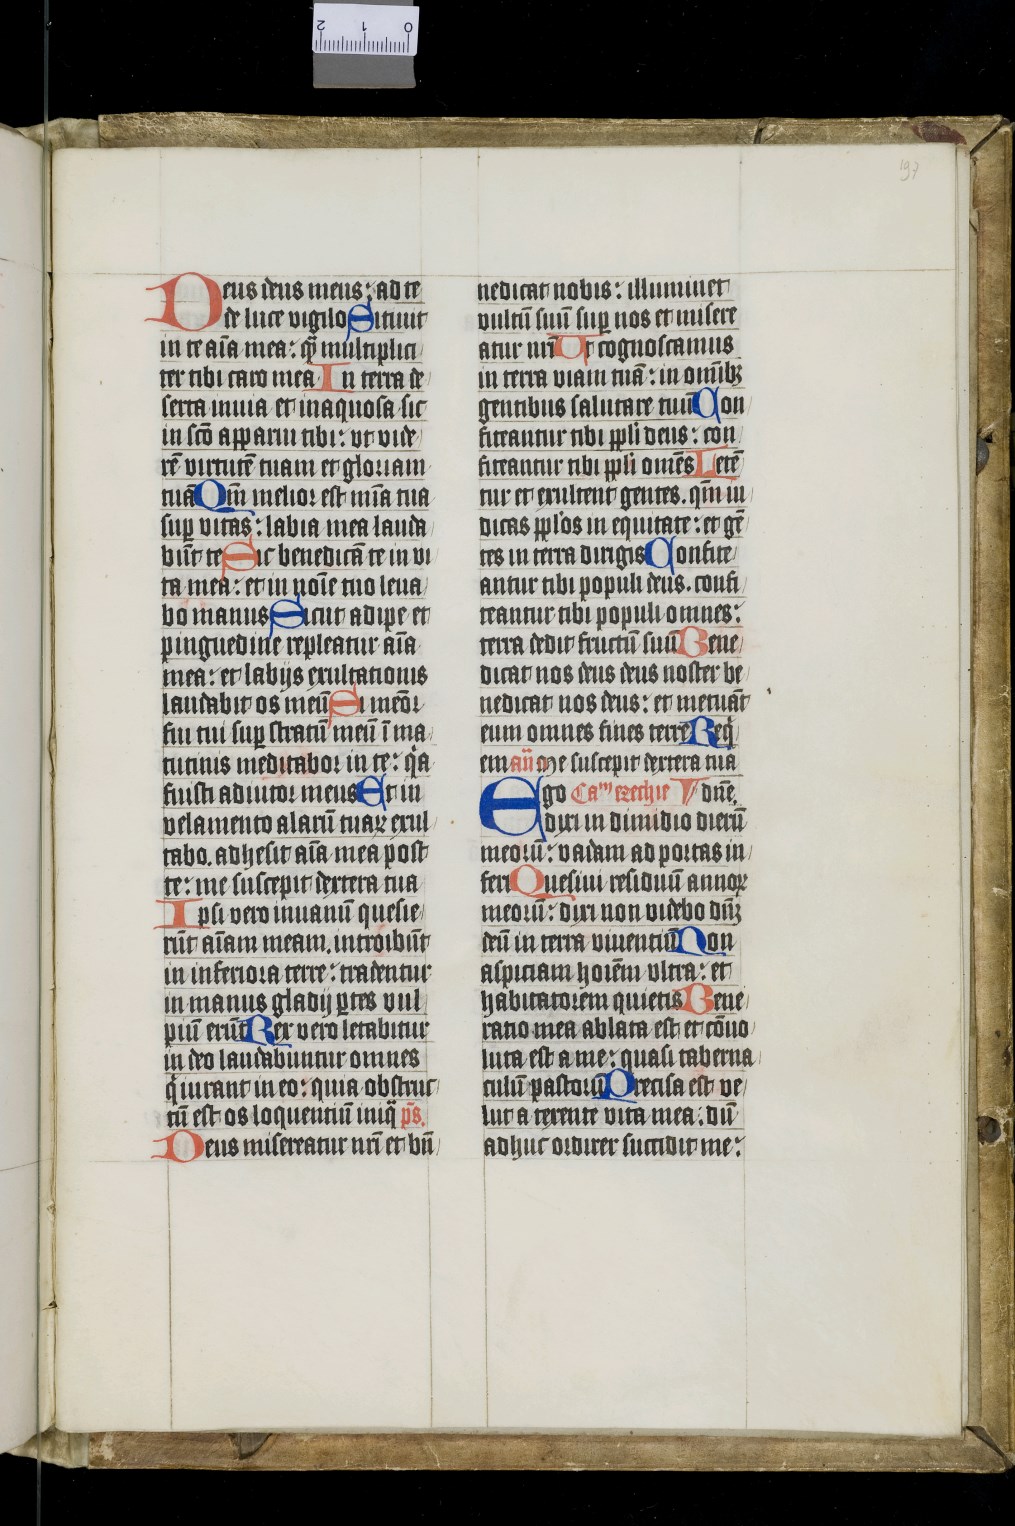 197
Deus deus meus: ad te
de luce vigilo Sitiuit
in te aīa mea: qͣ multiplici
ter tibi caro mea In terra de
serta inuia et inaquosa sic
in scō apparui tibi: vt vide
rē virtutē tuam et gloriam
tuā Qm̄ melior est mīa tua
sup vitas: labia mea lauda
būt te Sic benedicā te in vi
ta mea: et in noīe tuo leua
bo manus Sicut adipe et
pinguedine repleatur aīa
mea: et labijs exultationis
laudabit os meū Si meōr
fui tui sup stratū meū ī ma
tutinis meditabor in te: qͥa
fuisti adiutor meus Et in
velamento alarū tuaꝝ exul
tabo. adhesit aīa mea post
te: me suscepit dextera tua
Ipsi vero inuanū quesie
rūt aīam meam. introibūt
in inferiora terre: tradentur
in manus gladij ꝑtes vul
piū erūt Rex vero letabitur
in deo laudabuntur omnes
qͥ iurant in eo: quia obstruc
tū est os loquentiū iniqͣ ps̄.
Deus misereatur nrī et bn̄
nedicat nobis: illuminet
vultū suū sup nos et misere
atur nrī Ut cognoscamus
in terra viam tuā: in omībꝫ
gentibus salutare tuū Con
fiteantur tibi ppli deus: con
fiteantur tibi ppli omēs Letē
tur et exultent gentes. qm̄ iu
dicas pplos in equitate: et gē
tes in terra dirigis Confite
antur tibi populi deus. confi
teantur tibi populi omnes:
terra dedit fructū suū Bene
dicat nos deus deus noster be
nedicat nos deus: et metuāt
eum omnes fines terre Reqͥ
em añ Me suscepit dextera tua
Ego Caᵐ ezechie V dn̄e.
dixi in dimidio dierū
meorū: vadam ad portas in
feri Quesiui residuū annoꝝ
meorū: dixi non videbo dn̄ꝫ
deū in terra viuentiū Non
aspiciam hoiēm vltra: et
habitatorem quietis Gene
ratio mea ablata est et cōuo
luta est a me: quasi taberna
culū pastorū Precisa est ve
lut a texente vita mea: dū
adhuc ordirer succidit me: